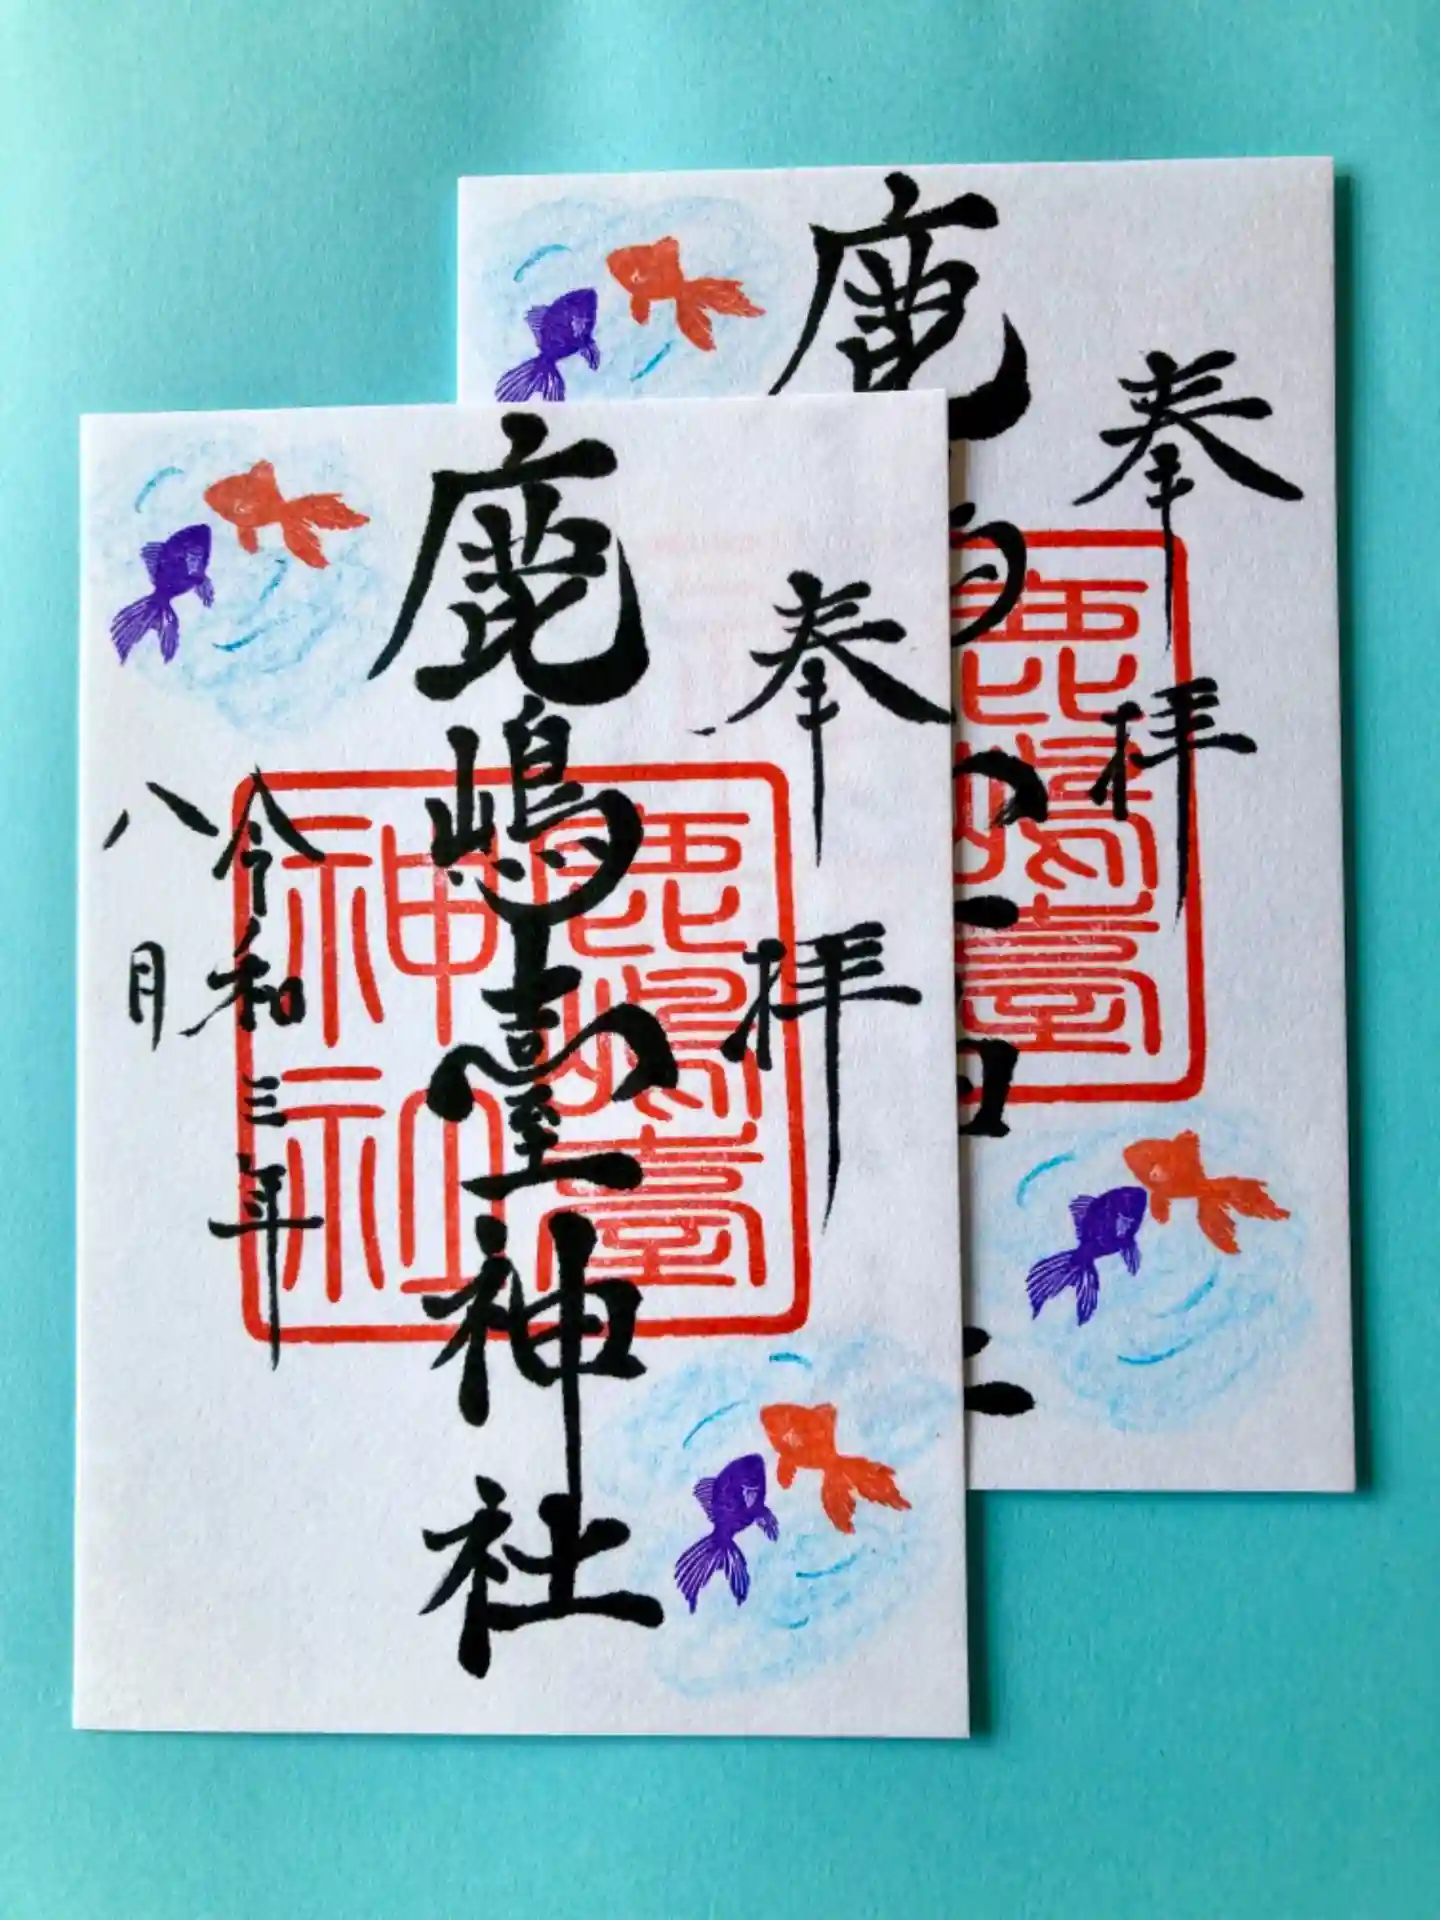 奉拝
鹿嶋臺神社
鹿嶋臺
神社
令和三年
八月
奉拝
鹿
鹿嶋臺